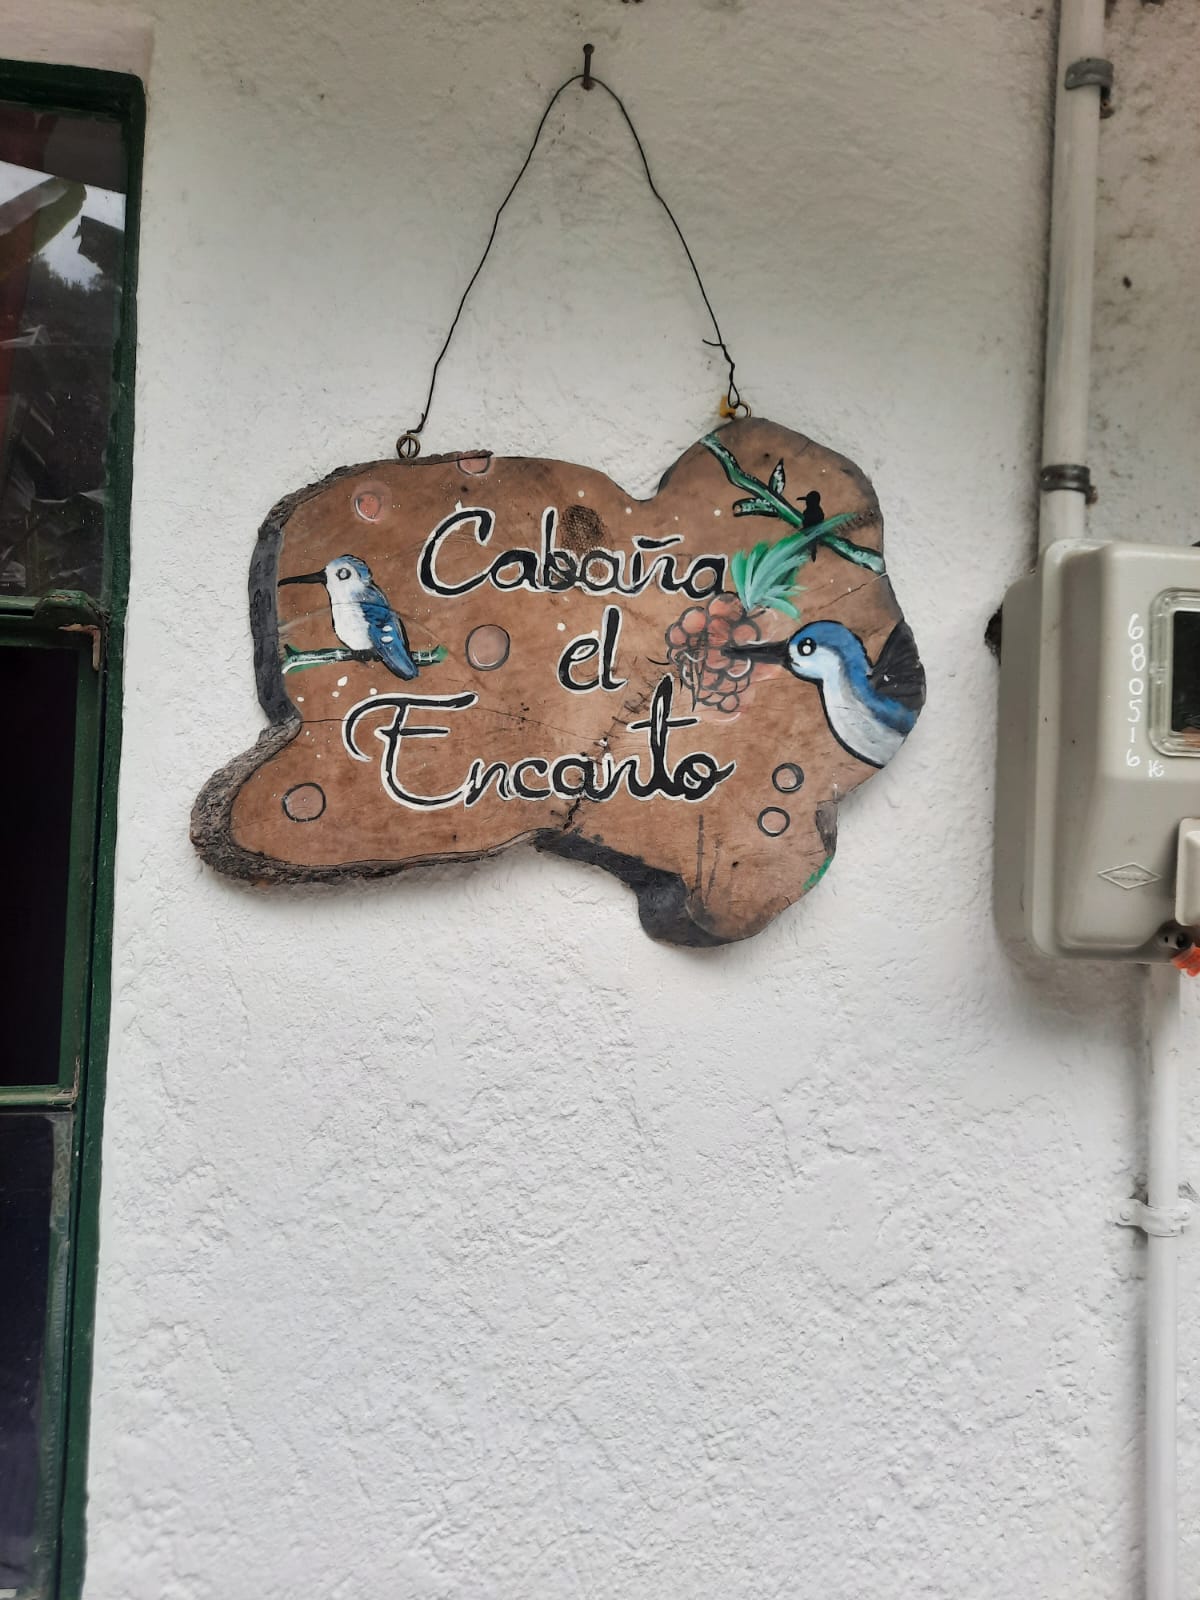 Cabaña
el
Encanto
680516